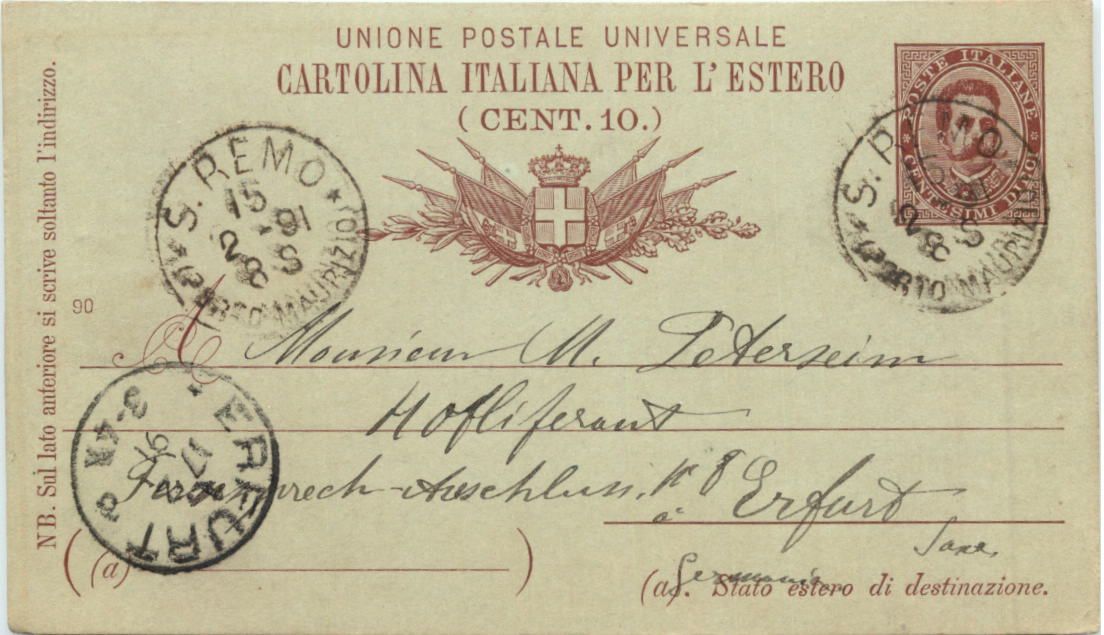 UNIONE POSTALE UNIVERSALE
CARTOLINA ITALIANA PER L'ESTERO
(CENT. 10.)
POSTE ITALIANE
CENTESIMI DIECI
S. REMO
15
91
2
8 S
(PORTO MAURIZIO)
S. REMO
91
2
8 S
(PORTO MAURIZIO)
NB. Sul lato anteriore si scrive soltanto l'indirizzo.
90
A Monsieur M. Peterseim
Hofliferant
Fernsprech-Anschluss. No 8
à Erfurt
Saxe,
Germania
ERFURT
17
2
91
3-4N
(a)
(a). Stato estero di destinazione.